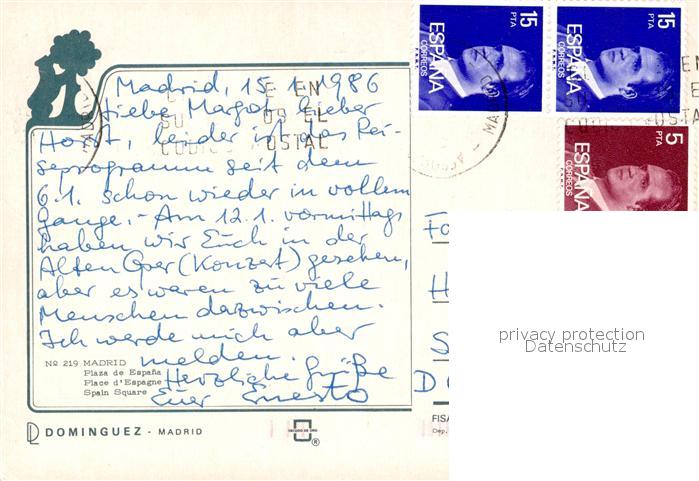 15 PTA ESPAÑA CORREOS
15 PTA ESPAÑA CORREOS
5 PTA ESPAÑA CORREOS
MADRID
Madrid, 15.1.1986
Liebe Margot, lieber
Horst, leider ist das Rei-
seprogramm seit dem
6.1. schon wieder in vollem
Gange. - Am 12.1. vormittags
haben wir Euch in der
Alten Oper (Konzert) gesehen,
aber es waren zu viele
Menschen dazwischen.
Ich werde mich aber
melden.
Herzliche Grüße
Euer Ernesto
Nº 219 MADRID
Plaza de España
Place d'Espagne
Spain Square
DOMINGUEZ - MADRID
FISA
privacy protection
Datenschutz